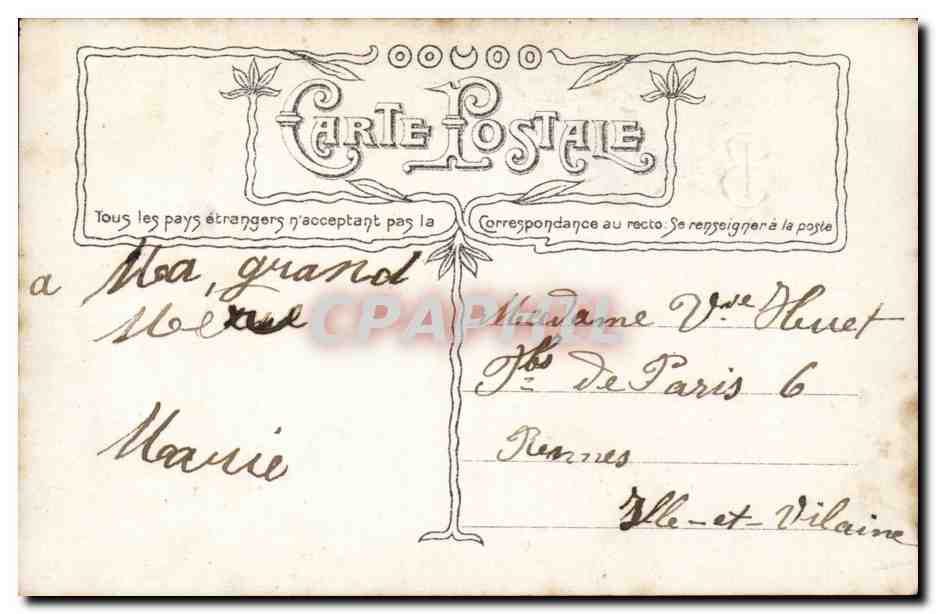 CARTE POSTALE
Tous les pays étrangers n'acceptant pas la Correspondance au recto: Se renseigner à la poste
a Ma, grand
Mere
Marie
CPAPHIL
Madame Vve Huet
Fbg de Paris 6
Rennes
Ille-et-Vilaine